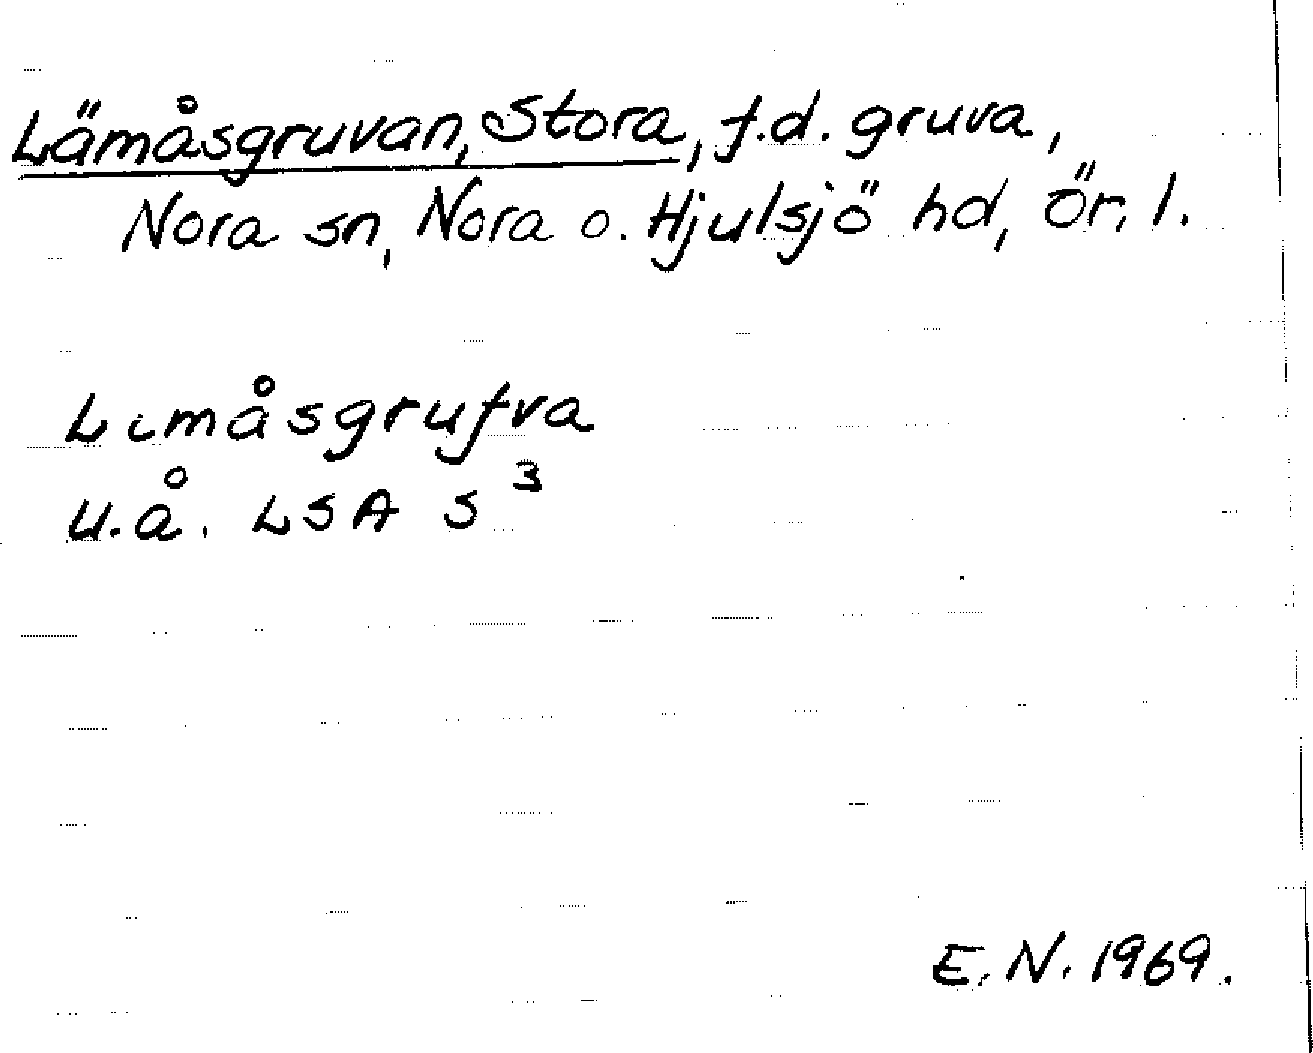 Lämåsgruvan, Stora, f.d. gruva,
Nora sn, Nora o. Hjulsjö hd, Ör. l.
Limåsgrufva
u.å. LSA S 3
E. N. 1969.